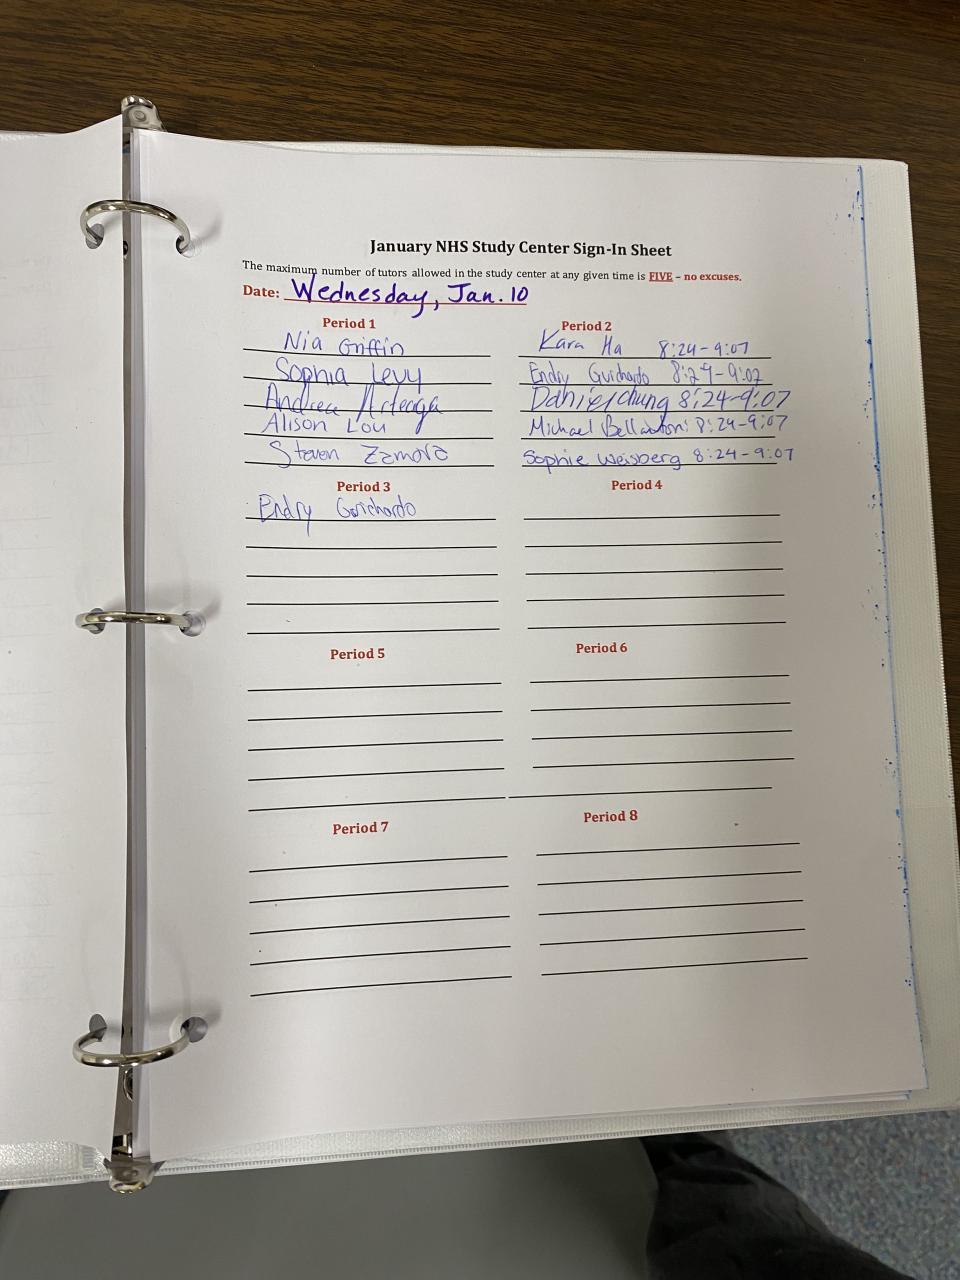 January NHS Study Center Sign-In Sheet
The maximum number of tutors allowed in the study center at any given time is FIVE – no excuses.
Date: Wednesday, Jan. 10
Period 1
Nia Griffin
Sophia Levy
Andrea Arteaga
Alison Lou
Steven Zamora
Period 2
Kara Ha 8:24-9:07
Endry Guichardo 8:24-9:07
Daniel chung 8:24-9:07
Michael 8:24-9:07
Sophie Weisberg 8:24-9:07
Period 3
Endry Guichardo
Period 4
Period 5
Period 6
Period 7
Period 8